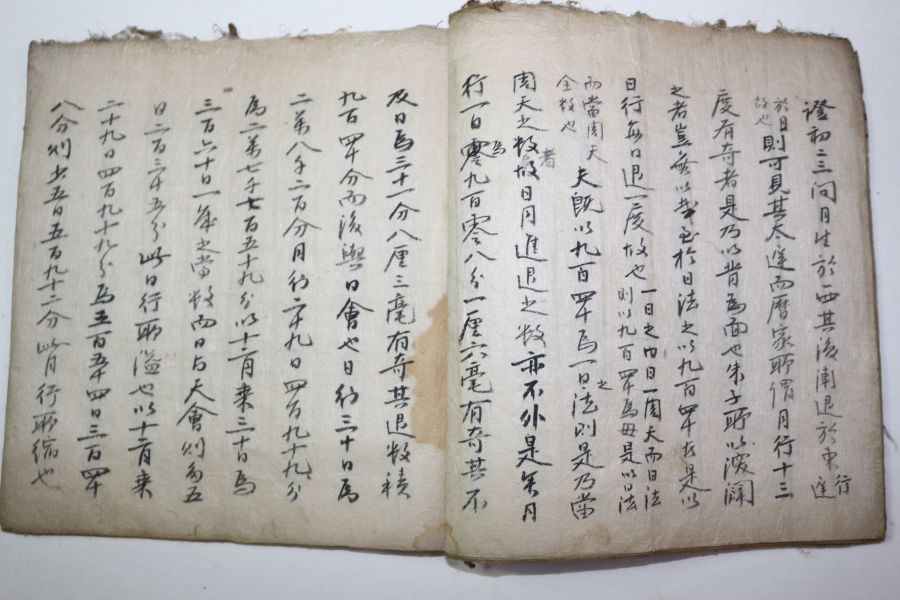 證初三間月生於西其後漸退於東遲行
於日則可見其太遲而曆家所謂月行十三
故也
度有奇者是乃以背爲面也朱子所以深闢
之者豈無以哉至於日法之以九百四十者是以
日行每日退一度故也一日之內日一周天而日法
則以九百四十爲母是以日法
而當周天
全數也
夫旣以九百四十爲一日之法則是乃當
周天之數者故日月進退之數亦不外是矣月
行一日爲零九百零八分一厘六毫有奇其不
及日爲三十一分八厘三毫有奇其退數積
九百四十分而後與日會也日行三十日爲
二萬八千二百分月行二十九日四百九十九分
爲二萬七千七百五十九分以十二月乘三十日爲
三百六十日一年之當數而日與天會則多五
日二百三十五分此日行所溢也以十二月乘
二十九日四百九十九分爲三百五十四日三百四十
八分則少五日五百九十二分此月行所縮也